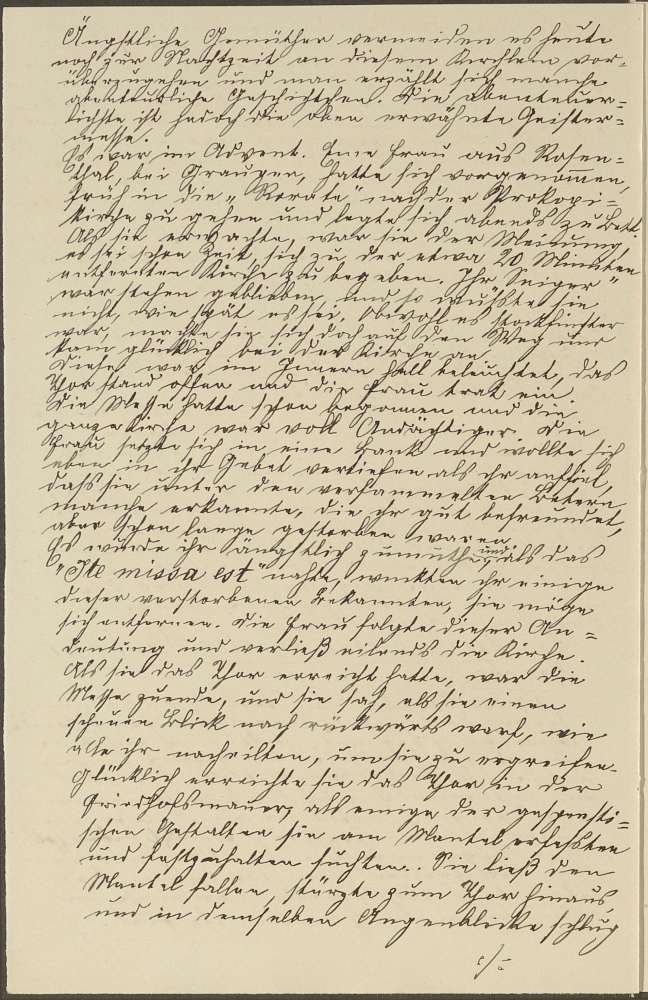 Ängstliche Gemüther vermeiden es heute
noch zur Nachtzeit an diesem Kirchlein vor=
überzugehen und man erzählt sich manche
abenteuerliche Geschichtchen. Die abenteuer=
lichste ist jedoch die oben erwähnte Geister=
messe.
Es war im Advent. Eine Frau aus Rosen=
thal, bei Graupen, hatte sich vorgenommen,
früh in die „Rorate" nach der Prokopi=
kirche zu gehen und legte sich abends zu Bett.
Als sie erwachte, war sie der Meinung,
es sei schon Zeit, sich zu der etwa 20 Minuten
entfernten Kirche zu begeben. Ihr „Seiger"
war stehen geblieben, und so wußte sie
nicht, wie spät es sei. Obwohl es stockfinster
war, machte sie sich doch auf den Weg und
kam glücklich bei der Kirche an.
Diese war im Innern hell beleuchtet, das
Thor stand offen und die Frau trat ein.
Die Messe hatte schon begonnen und die
ganze Kirche war voll Andächtiger. Die
Frau setzte sich in eine Bank und wollte sich
eben in ihr Gebet vertiefen als ihr auffiel,
dass sie unter den versammelten Betern
manche erkannte, die ihr gut befreundet,
aber schon lange gestorben waren.
Es wurde ihr ängstlich zumuthe, und als das
"Ite missa est" nahte, winkten ihr einige
dieser verstorbenen Bekannten, sie möge
sich entfernen. Die Frau folgte dieser An=
deutung und verließ eilends die Kirche.
Als sie das Thor erreicht hatte, war die
Messe zuende, und sie sah, als sie einen
scheuen Blick nach rückwärts warf, wie
alle ihr nacheilten, um sie zu ergreifen.
Glücklich erreichte sie das Thor in der
Friedhofsmauer, als einige der gespensti=
schen Gestalten sie am Mantel erfassten
und festzuhalten suchten. Sie ließ den
Mantel fallen, stürzte zum Thor hinaus,
und in demselben Augenblicke schlug